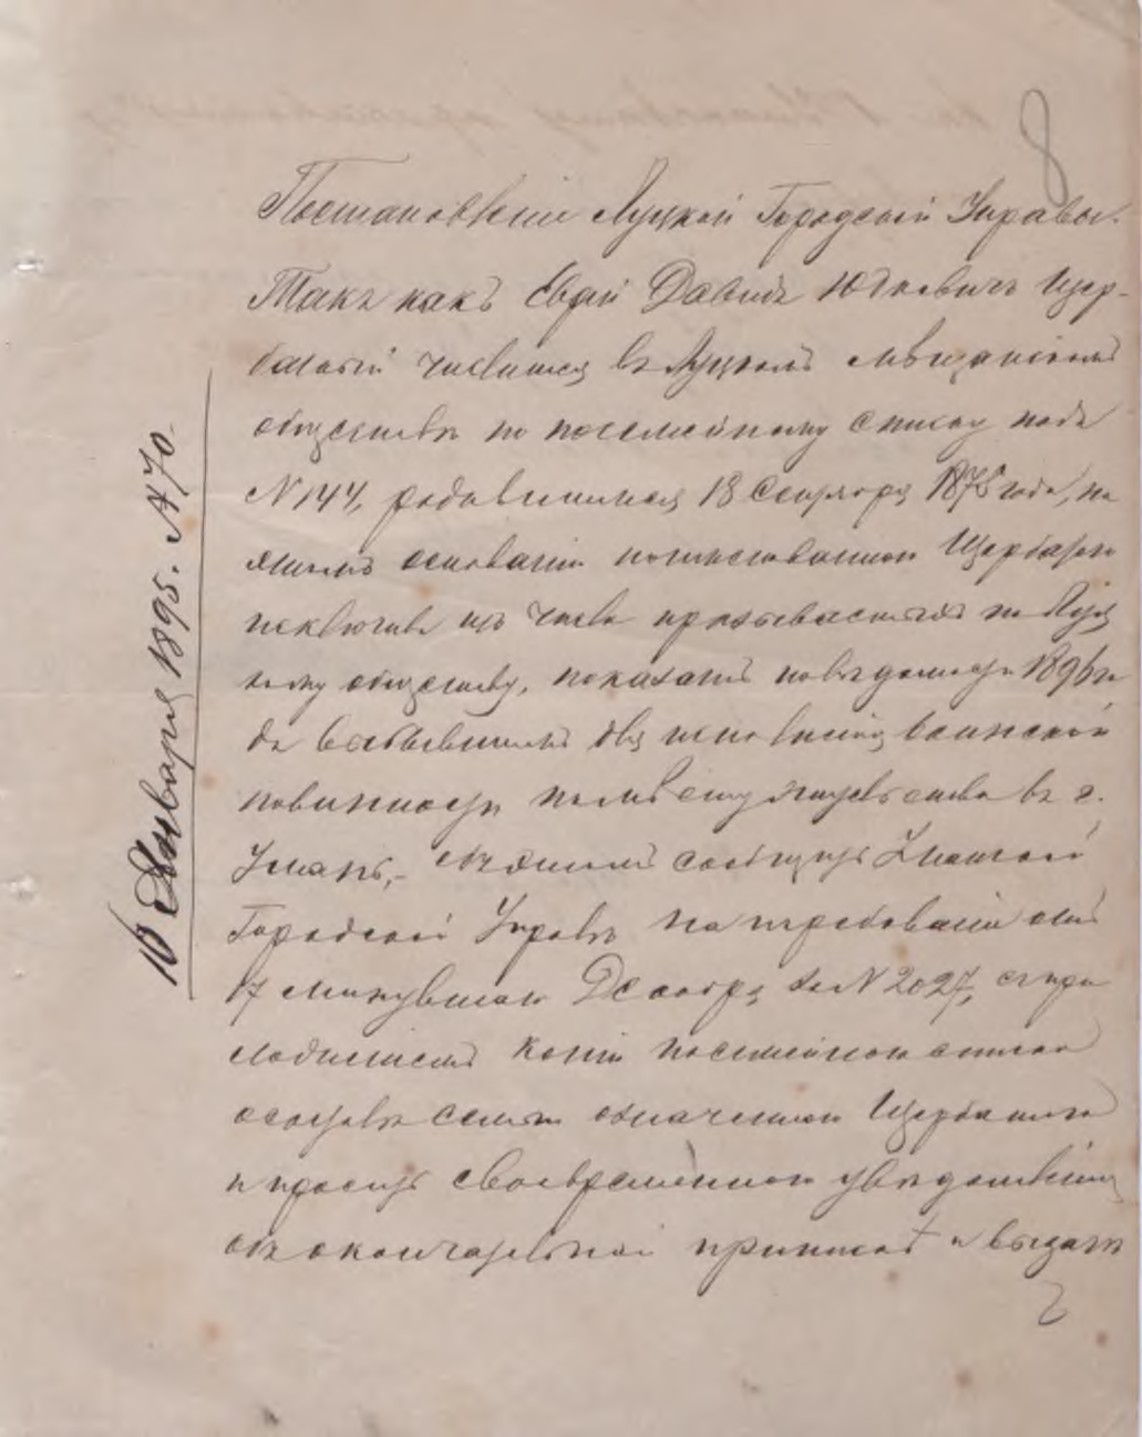 8
Постановленіе Луцкой Городской Управы.
Такъ какъ Еврей Давидъ Юдковичъ Щер-
батый числится въ Луцкомъ мѣщанскомъ
обществѣ по посемейному списку подъ
N 144, родившимся 18 Сентября 1875 года, на
основаніи Щербатого
исключить изъ числа призываемыхъ по Луц
кому обществу, показавъ по вѣдомости 1896 го
да выбывшимъ для исполненія воинской
повинности по мѣсту жительства въ г.
Умань, сообщить Уманской
Городской Управѣ на требованіе отъ
17 минувшаго Декабря за N 2027, съ при
ложеніемъ копіи посемейнаго списка
о составѣ семьи означеннаго Щербатого
и просить своевременнаго увѣдомленія
объ окончательной припискѣ и выдачѣ
16 Января 1895. N 70